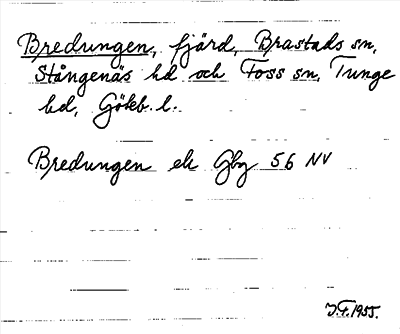 Bredungen, fjärd, Brastads sn,
Stångenäs hd och Foss sn, Tunge
hd, Gökb. l.
Bredungen ek Gbg 56 NV
J.F. 1955.